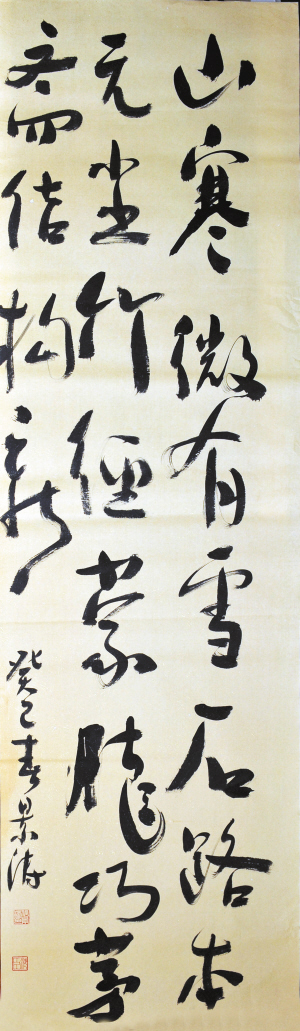 山寒微有雪石路本
无尘竹径蒙胧巧茅
斋结构新
癸巳春景涛